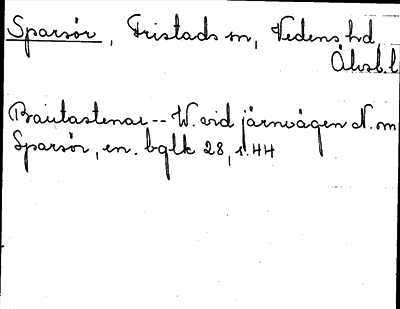 Sparsör, Fristads sn, Vedens hd,
Älvsb.l
Bautastenar -- W. vid järnvägen N. om
Sparsör, en. bglk 28, s. 44